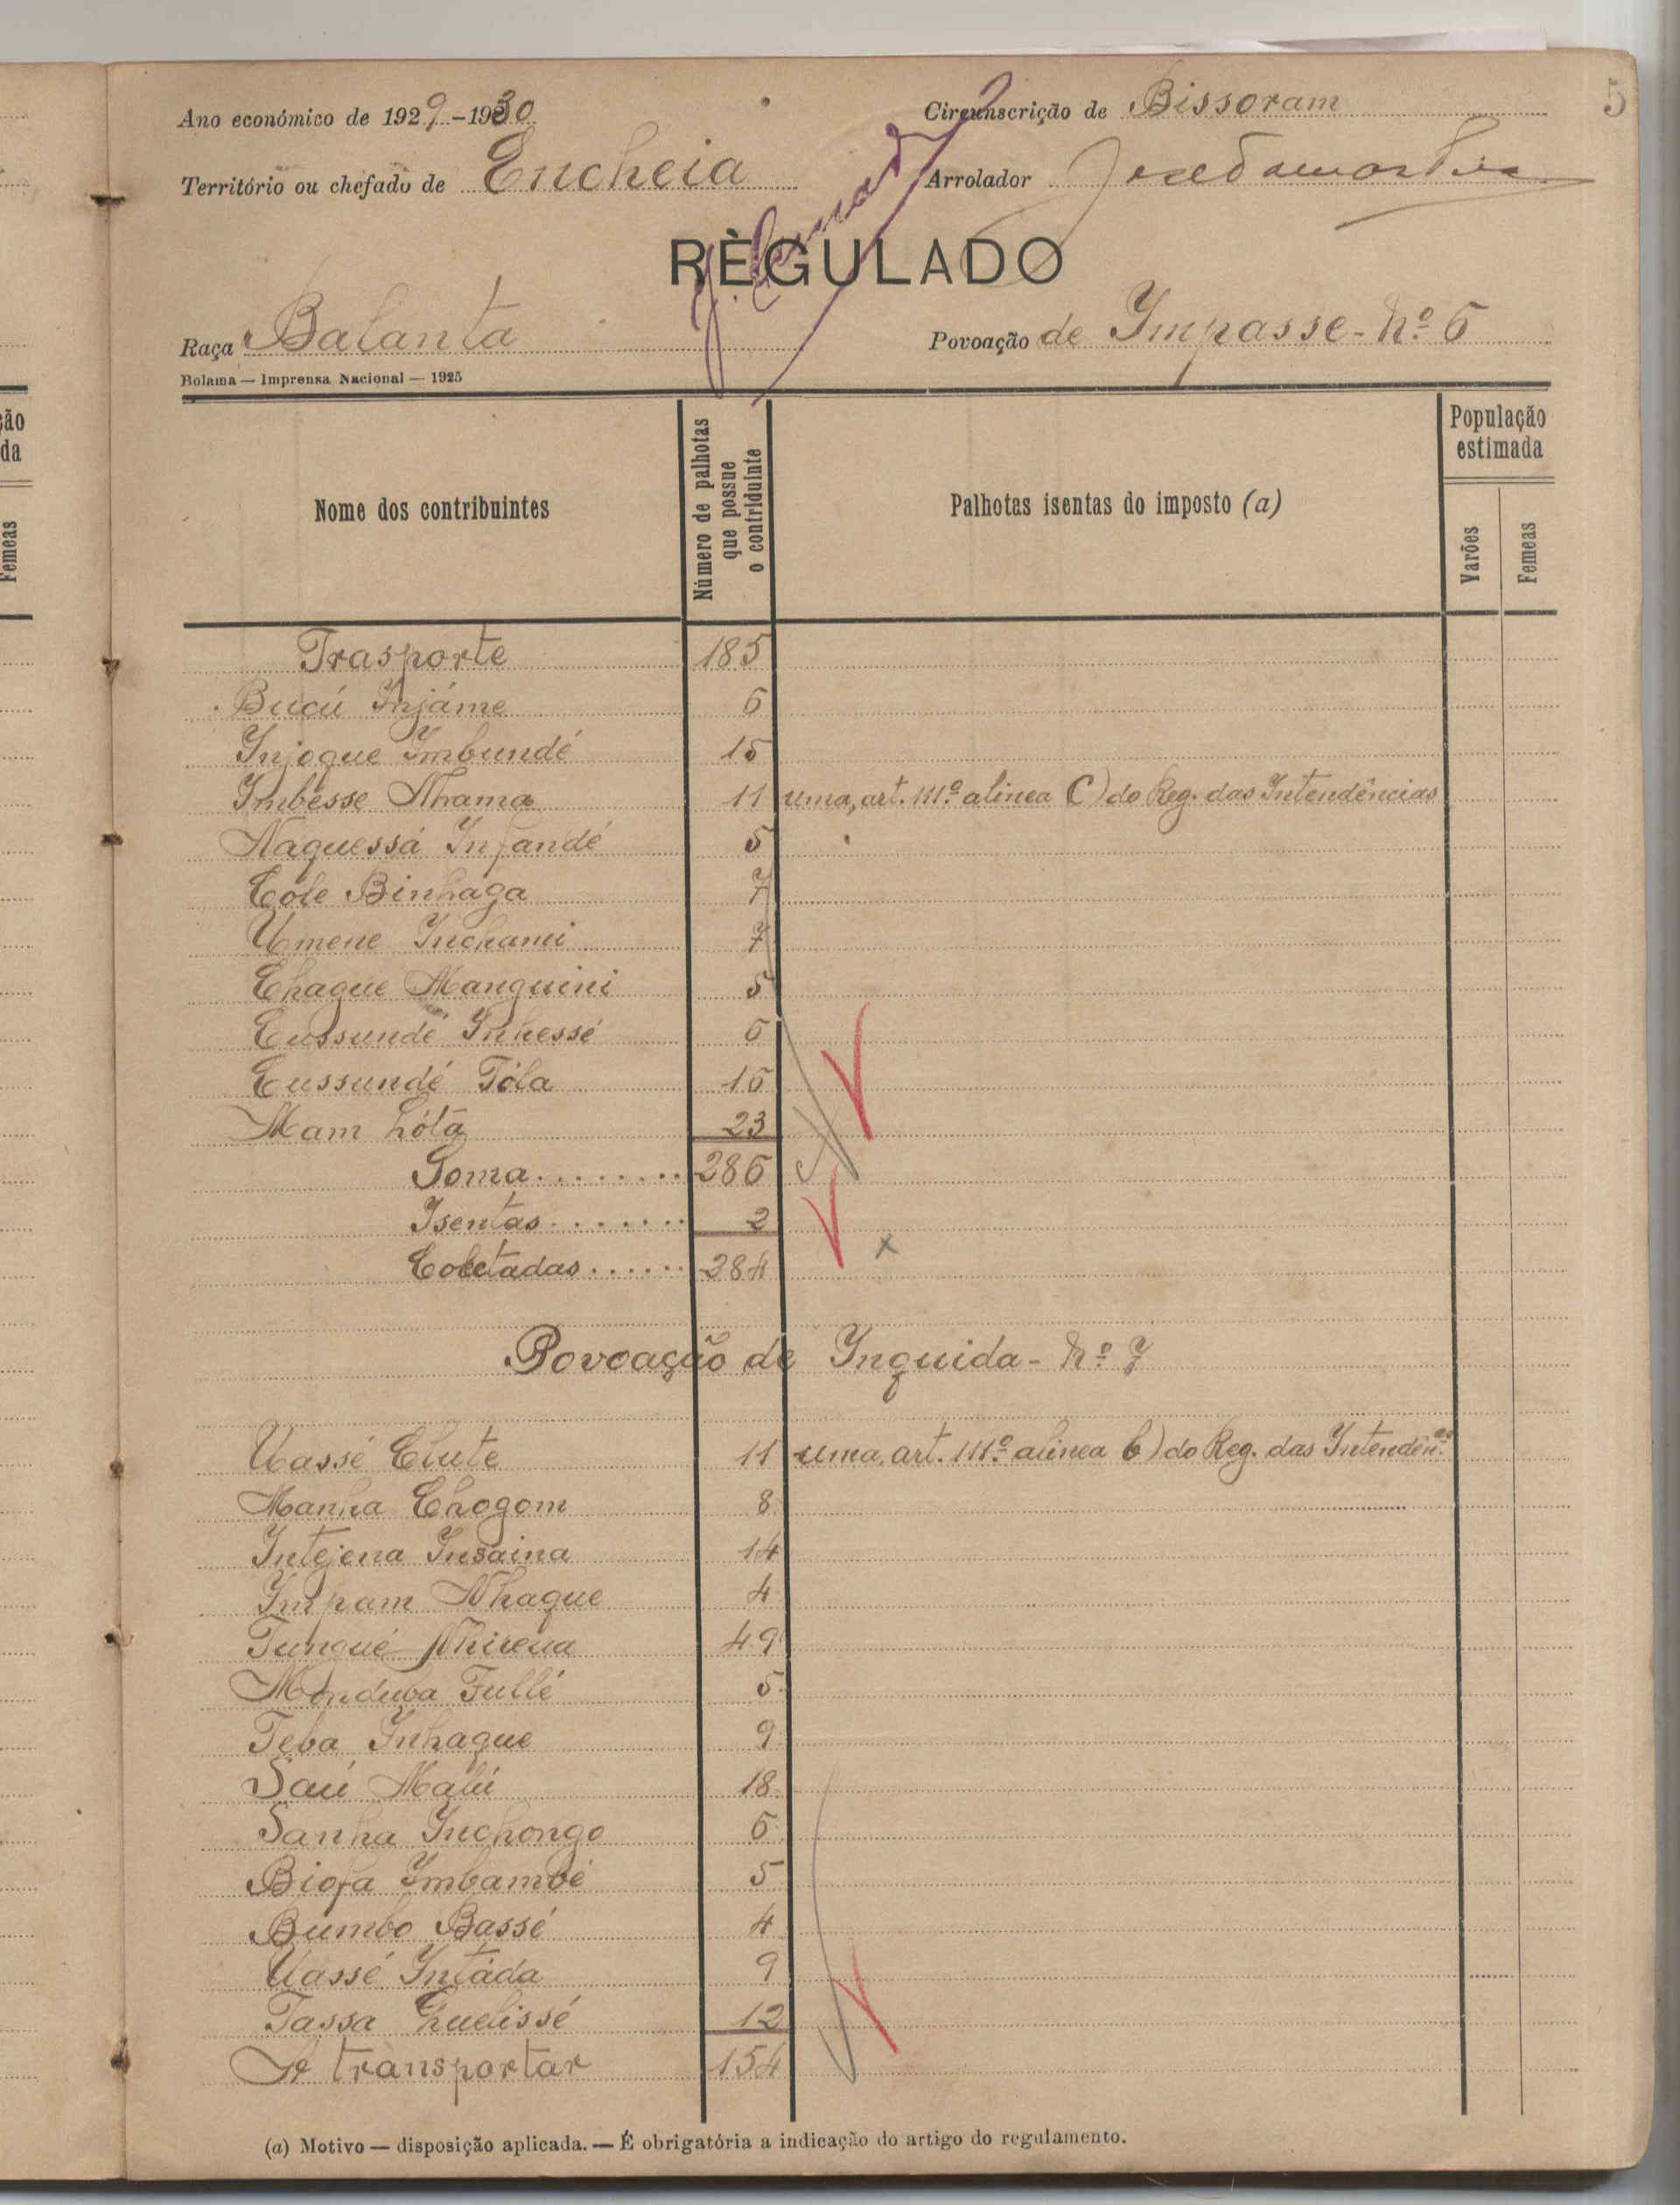 5
Ano económico de 1929-1930
Circunscrição de Bissoram
Território ou chefado de Encheia
Arrolador
RÈGULADO
Raça Balanta
Povoação de Impasse - Nº 6
Bolama — Imprensa Nacional — 1925
Nome dos contribuintes
Número de palhotas que possue o contriduinte
Palhotas isentas do imposto (a)
População estimada
Varões
Femeas
Trasporte 185
Bucú Injáme 6
Injoque Imbundé 15
Imbésse Nhama 11 uma, art. 111º alinea C) do Reg. das Intendências
Naquessá Infandé 5
Cóle Binhaga 7
Umene Inchami 7
Chague Manguini 5
Cussundé Inhessé 6
Cussundé Tóla 16
Mam Lóta 23
Soma........ 286
Isentas....... 2
Coletadas...... 284
Povoação de Inquida - Nº 7
Uassé Clute 11 uma, art. 111º alinea b) do Reg. das Intendên.as
Manha Chogom 8
Intejena Insaina 14
Impam Nhaque 4
Tungué 49
Monduba Fullé 5
Teba Inhaque 9
Saú Malú 18
Sanha Inchongo 6
Biofa Imbambé 5
Bumbo Bassé 4
Uassé Intáda 9
Tassa 12
A transportar 154
(a) Motivo — disposição aplicada. — É obrigatória a indicação do artigo do regulamento.
ção
da
Femeas